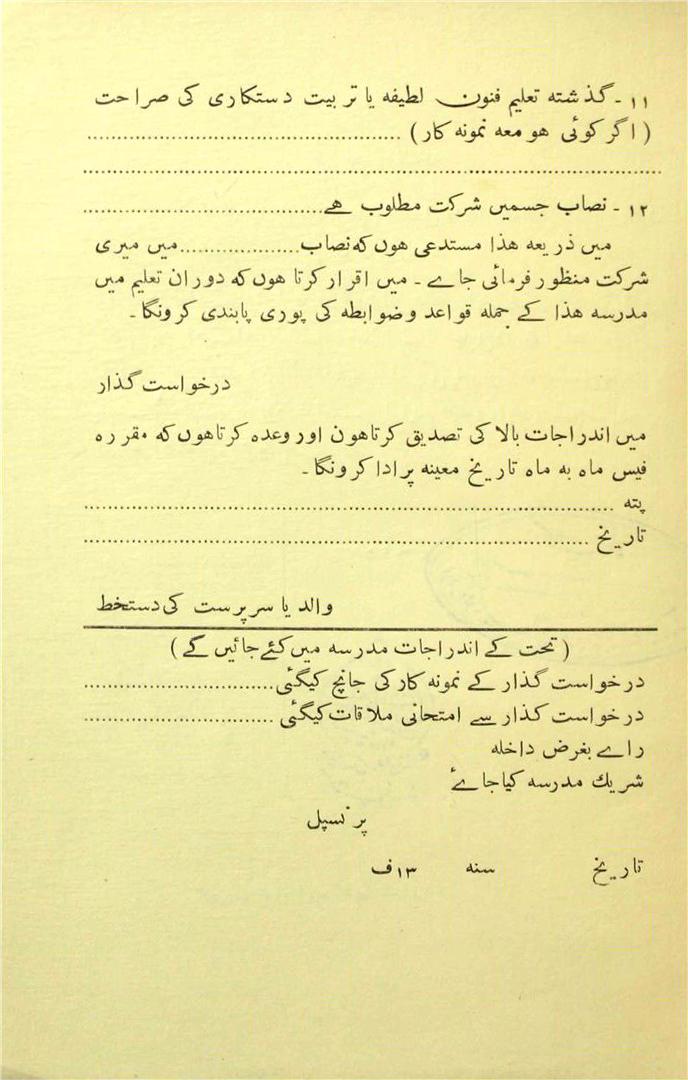 ۱۱ - گذشته تعلیم فنون لطیفه یا تربیت دستکاری کی صراحت
( اگر کوئی هو معه نمونه کار ) ............................................
................................................................................
۱۲ - نصاب جسمیں شرکت مطلوب هے....................................
میں ذریعه هذا مستدعی هوں که نصاب..................میں میری
شرکت منظور فرمائی جاے ـ میں اقرار کرتا هوں که دوران تعلیم میں
مدرسه هذا کے جمله قواعد و ضوابطه کی پوری پابندی کرونگا ـ
درخواست گذار
میں اندراجات بالا کی تصدیق کرتا هون اور وعده کرتا هوں که مقرره
فیس ماه به ماه تاریخ معینه پر ادا کرونگا ـ
پته ................................................................................
تاریخ ............................................................................
والد یا سرپرست کی دستخط
( تحت کے اندراجات مدرسه میں کئے جائیں گے )
درخواست گذار کے نمونه کار کی جانچ کیگئی............................
درخواست گذار سے امتحانی ملاقات کیگئی ............................
راے بغرض داخله
شریك مدرسه کیا جاۓ
پرنسپل
تاریخ سنه ۱۳ف